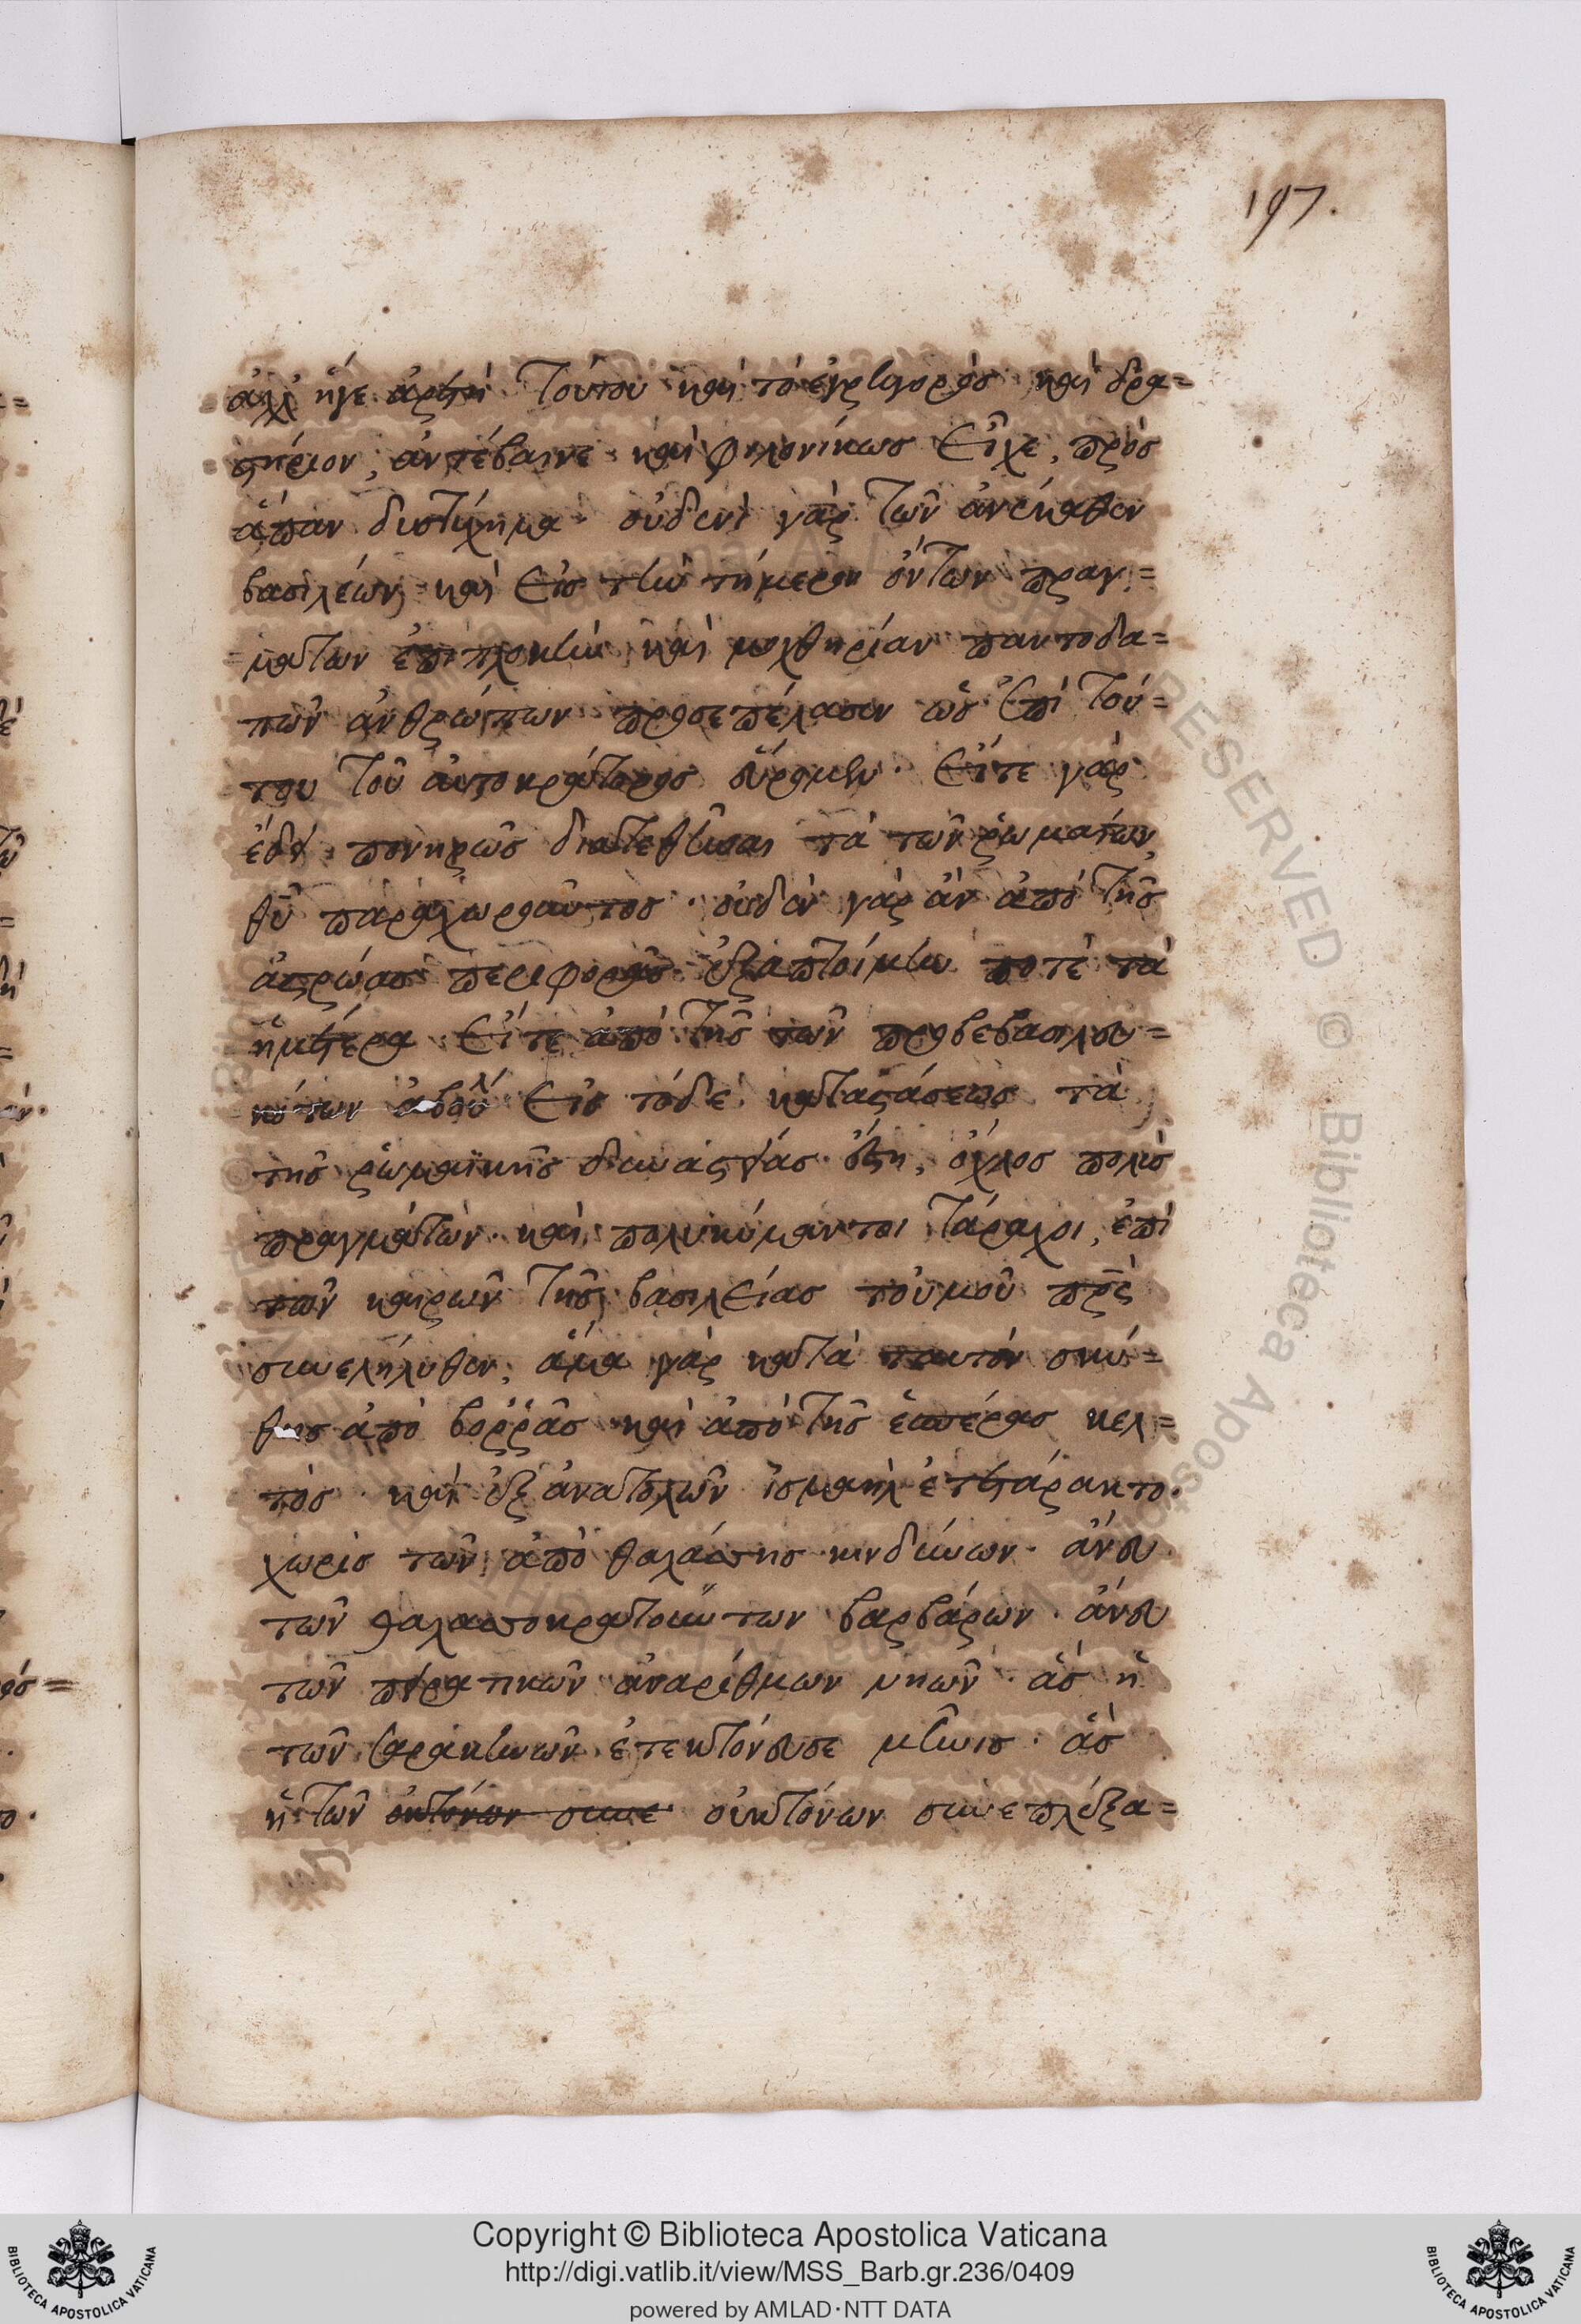 197.
ἀλλ' ἥγε ἀρετὴ τούτου καὶ τὸ ἐγρηγορὸς καὶ δρα=
στήριον, ἀντέβαινε καὶ φιλονίκως εἶχε, πρὸς
ἅπαν δυστύχημα· οὐδενὶ γὰρ τῶν ἀνέκαθεν
βασιλέων, καὶ εἰς τὴν τήμερον ὄντων πραγ=
μάτων ἐπιπλοκὴν καὶ μοχθηρίαν παντοδα=
πῶν ἀνθρώπων προσεπέλασεν ὡς ἐπὶ τού=
του τοῦ αὐτοκράτορος εὕρομεν· εἴτε γὰρ
ἔδει πονηρῶς διατεθῆναι τὰ τῶν ῥωμαίων,
θῦ παραχωροῦντος· οὐδὲν γὰρ ἂν ἀπὸ τῆς
ἀστρώας περιφορᾶς ἐξαπτοίμην ποτὲ τὰ
ἡμέτερα εἴτε ἀπὸ τῆς τῶν προβεβασιλευ=
κότων ἀβουλ εἰς τόδε καταστάσεως τὰ
τῆς ῥωμαϊκῆς δυναστείας ἥξη, ὄχλος πολὺς
πραγμάτων· καὶ πολυκύμαντοι τάραχοι, ἐπὶ
τῶν καιρῶν τῆς βασιλείας τοὐμοῦ πρς
συνελήλυθεν, ἅμα γὰρ κατὰ ταυτὸν σκύ=
θης ἀπὸ βορρᾶς καὶ ἀπὸ τῆς ἑσπέρας κελ=
τὸς· καὶ ἐξ ἀνατολῶν ἰσμαὴλ ἐτετάρακτο·
χωρὶς τῶν ἀπὸ θαλάσσης κινδύνων· ἄνευ
τῶν θαλασσοκρατούντων βαρβάρων· ἄνευ
τῶν πειρατικῶν ἀναρίθμων νηῶν· ἃς ἡ
τῶν σαρακηνῶν ἐτεκτόνευσε μῆνις· ἃς
ἡ τῶν οὐκτόνων συνε οὐκτόνων συνεπλέξα=
Copyright © Biblioteca Apostolica Vaticana
http://digi.vatlib.it/view/MSS_Barb.gr.236/0409
powered by AMLAD·NTT DATA
BIBLIOTECA APOSTOLICA VATICANA
BIBLIOTECA APOSTOLICA VATICANA